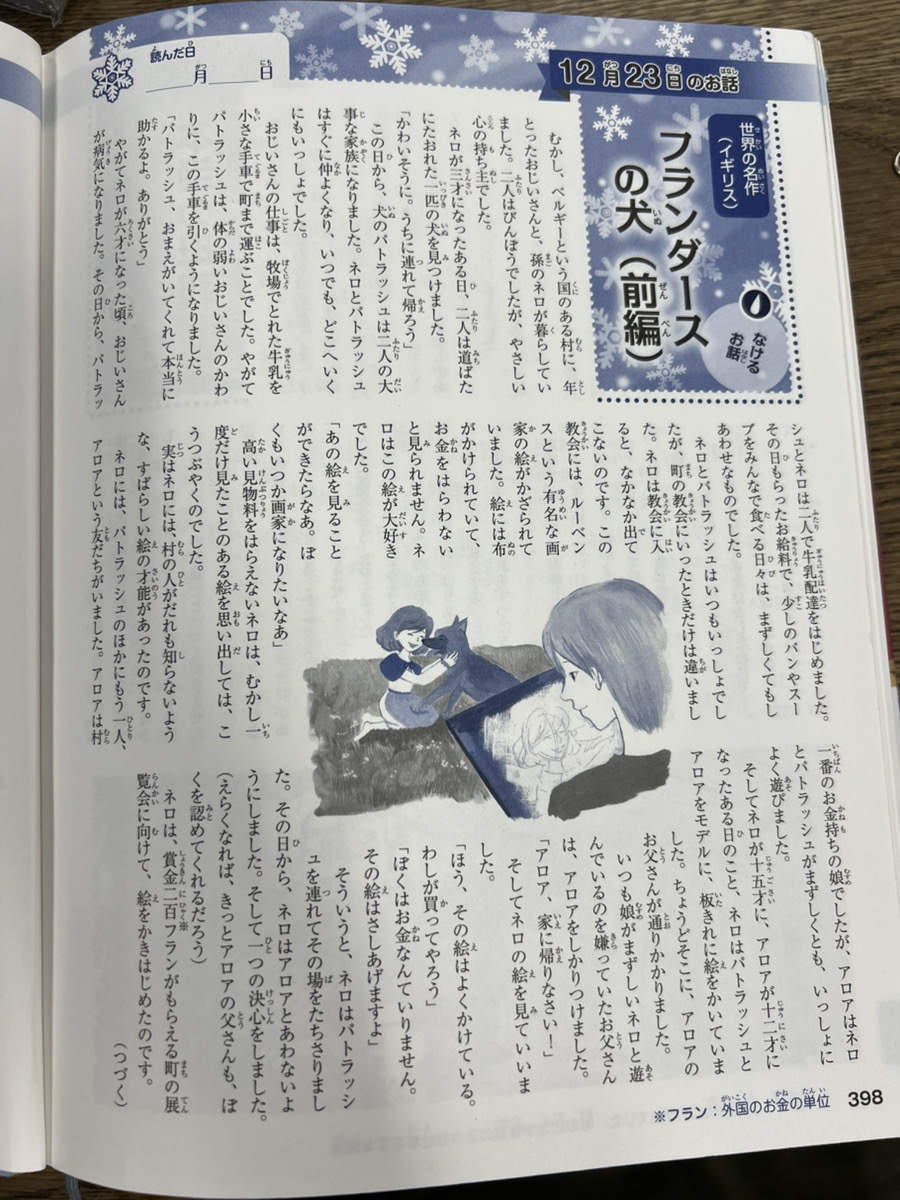 読んだ日
月　日
12月23日のお話
世界の名作
(イギリス)
フランダース
の犬(前編)
なける
お話
むかし、ベルギーという国のある村に、年
とったおじいさんと、孫のネロが暮らしてい
ました。二人はびんぼうでしたが、やさしい
心の持ち主でした。
ネロが三才になったある日、二人は道ばた
にたおれた一匹の犬を見つけました。
「かわいそうに。うちに連れて帰ろう」
この日から、犬のパトラッシュは二人の大
事な家族になりました。ネロとパトラッシュ
はすぐに仲よくなり、いつでも、どこへいく
にもいっしょでした。
おじいさんの仕事は、牧場でとれた牛乳を
小さな手車で町まで運ぶことでした。やがて
パトラッシュは、体の弱いおじいさんのかわ
りに、この手車を引くようになりました。
「パトラッシュ、おまえがいてくれて本当に
助かるよ。ありがとう」
やがてネロが六才になった頃、おじいさん
が病気になりました。その日から、パトラッ
シュとネロは二人で牛乳配達をはじめました。
その日もらったお給料で、少しのパンやスー
プをみんなで食べる日々は、まずしくてもし
あわせなものでした。
ネロとパトラッシュはいつもいっしょでし
たが、町の教会にいったときだけは違いまし
た。ネロは教会に入
ると、なかなか出て
こないのです。この
教会には、ルーベン
スという有名な画
家の絵がかざられて
いました。絵には布
がかけられていて、
お金をはらわない
と見られません。ネ
ロはこの絵が大好き
でした。
「あの絵を見ること
ができたらなあ。ぼ
くもいつか画家になりたいなあ」
高い見物料をはらえないネロは、むかし一
度だけ見たことのある絵を思い出しては、こ
うつぶやくのでした。
実はネロには、村の人がだれも知らないよう
な、すばらしい絵の才能があったのです。
ネロには、パトラッシュのほかにもう一人、
アロアという友だちがいました。アロアは村
一番のお金持ちの娘でしたが、アロアはネロ
とパトラッシュがまずしくとも、いっしょに
よく遊びました。
そしてネロが十五才に、アロアが十二才に
なったある日のこと、ネロはパトラッシュと
アロアをモデルに、板きれに絵をかいていま
した。ちょうどそこに、アロアの
お父さんが通りかかりました。
いつも娘がまずしいネロと遊
んでいるのを嫌っていたお父さん
は、アロアをしかりつけました。
「アロア、家に帰りなさい！」
そしてネロの絵を見ていいま
した。
「ほう、その絵はよくかけている。
わしが買ってやろう」
「ぼくはお金なんていりません。
その絵はさしあげますよ」
そういうと、ネロはパトラッシ
ュを連れてその場をたちさりまし
た。その日から、ネロはアロアとあわないよ
うにしました。そして一つの決心をしました。
(えらくなれば、きっとアロアの父さんも、ぼ
くを認めてくれるだろう)
ネロは、賞金二百フラン※がもらえる町の展
覧会に向けて、絵をかきはじめたのです。
(つづく)
※フラン：外国のお金の単位
398